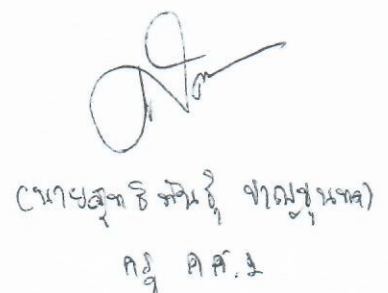 (นายสุทธิพันธุ์ ชาญชุนหด)
ครู คศ.1